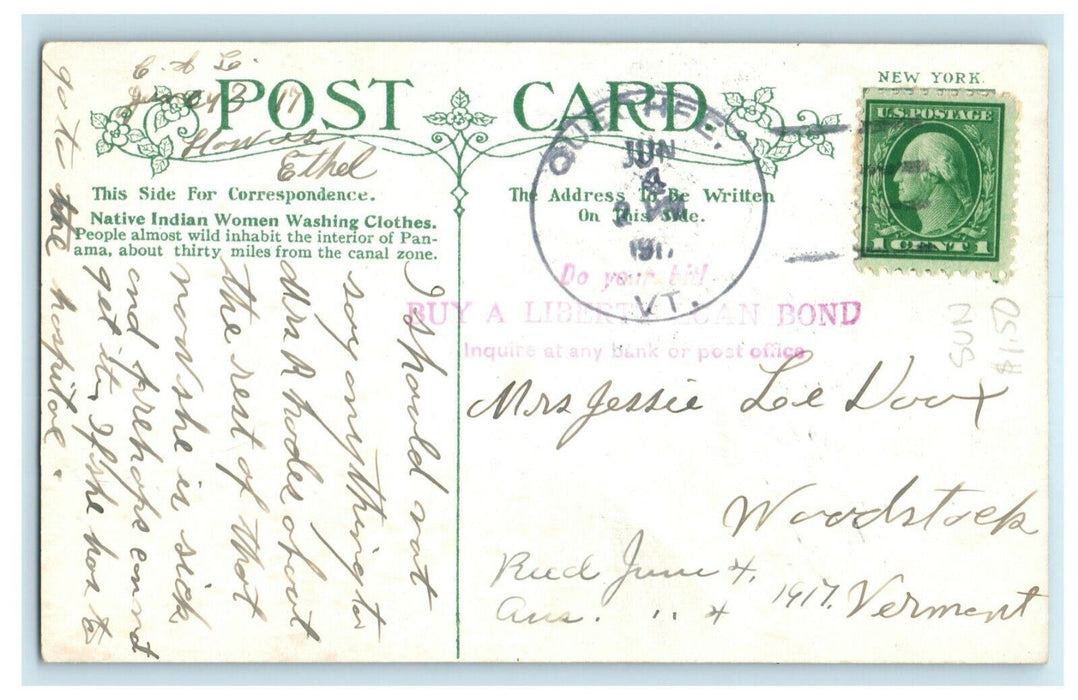 POST CARD
NEW YORK.
U.S. POSTAGE
1 CENT 1
QUECHEE,
JUN
4
191
VT.
This Side For Correspondence.
The Address To Be Written
On This Side.
Native Indian Women Washing Clothes.
People almost wild inhabit the interior of Pan-
ama, about thirty miles from the canal zone.
Do your bit!
BUY A LIBERTY LOAN BOND
Inquire at any bank or post office
17
Ethel
I should not
say anything to
Mrs Rhodes about
the rest of that
now she is sick
and prehaps cannot
get it, if she has to
go to the hospital.
Mrs Jessie Le Doux
Woodstock
Vermont
Recd June 4, 1917.
Ans. " 4